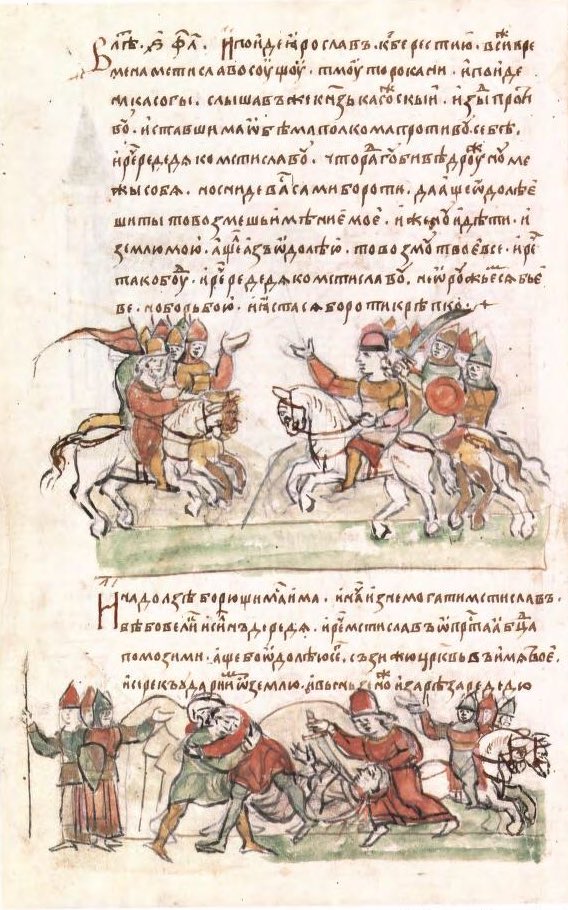 В лѣт҃. ҂ѕ҃ ф҃л҃. И поиде Ꙗрославъ. къ берестию. в сиже вре
мена мстиславоу соущоу. тмоутороканиⷯ. и поиде
на касогы. слышавъ же кнѧзь касоскыи. изыⷣ противоу
воⷹ. и ставшима ѡбѣма полкома противоу себѣ.
и рече редедѧ ко мстиславоу. что раⷣ гоубивѣ дроужиноу ме
жы собѧ. но снидевⷭѧ сами бороти. да аще ѡдолѣе
ши ты то возмеши имѣние мое. и женоу и дѣти. и
землю мою. аще ли азъ ѡдолѣю. то возмоу твое все. и рече
тако боуⷣ. и рече редедѧ ко мстиславоу. не ѡроужьемсѧ бье
ве. но борьбою. и ꙗстасѧ бороти крѣпко.
И надолзѣ борющимⷭѧ има. и нача изнемогати мстиславъ.
бѣ бо великъ и силенъ редедѧ. и рече мстиславъ ѡ преⷱта бц҃а
помози ми. аще бо ѡдолѣю семоу. съзижю цр҃квь въ имѧ твое.
и се рекъ оудари имъ ѡ землю. и вынзе ножь и зарѣза редедю